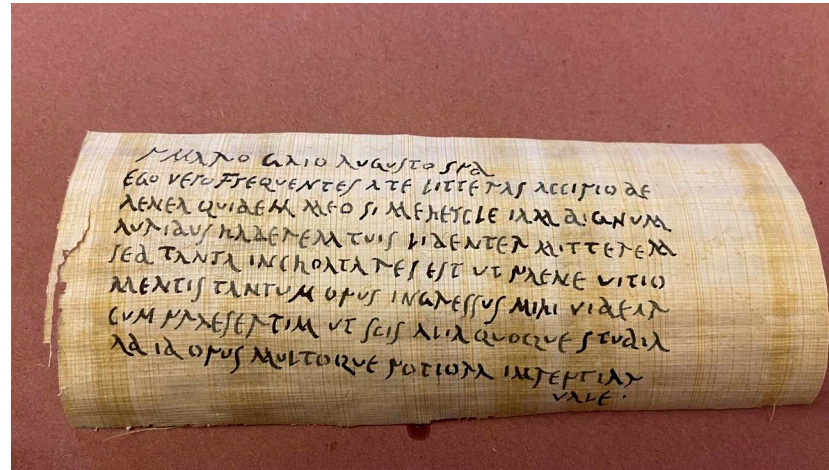 P MARO GAIO AUGUSTO SPD
EGO VERO FREQUENTES A TE LITTERAS ACCIPIO DE
AENEA QUIDEM MEO SI MEHERCLE IAM DIGNUM
AURIBUS HABEREM TUIS LIBENTER MITTEREM
SED TANTA INCHOATA RES EST UT PAENE VITIO
MENTIS TANTUM OPUS INGRESSUS MIHI VIDEAR
CUM PRAESERTIM UT SCIS ALIA QUOQUE STUDIA
AD ID OPUS MULTOQUE POTIORA IMPERTIAR
VALE ·